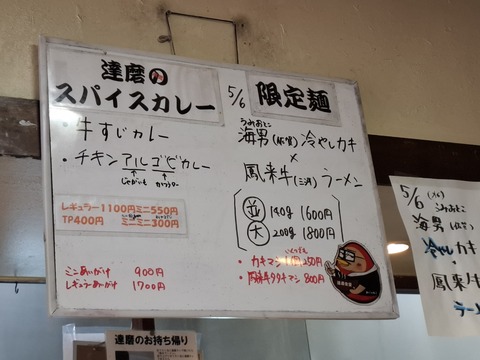 達磨の
スパイスカレー
・牛すじカレー
・チキンアルゴビカレー
じゃがいも カリフラワー
レギュラー1100円ミニ550円
TP400円 ミニミニ300円
ミニあいがけ 900円
レギュラーあいがけ 1700円
5/6 限定麺
うみおとこ
海男 冷やしカキ
×
鳳来牛 ラーメン
並 140g 1600円
大 200g 1800円
・カキマシ 250円
・鳳来牛タタキマシ 800円
達磨のお持ち帰り
5/6
うみおとこ
海男
冷やしカキ
×
鳳来牛
ラーメ